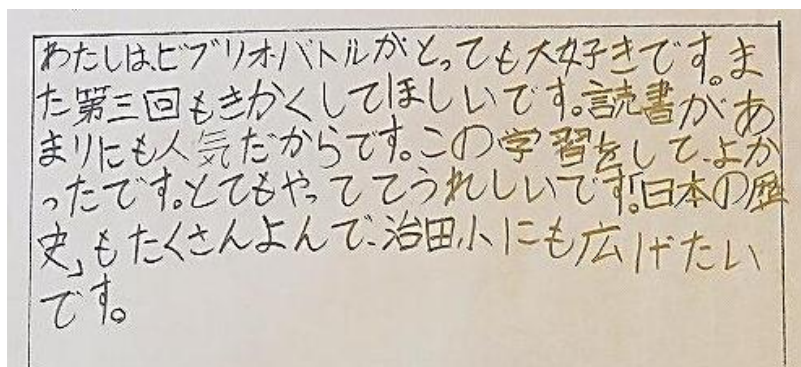 わたしは、ビブリオバトルがとっても大好きです。ま
た第三回もきかくしてほしいです。読書があ
まりにも人気だからです。この学習をして、よか
ったです。とてもやっててうれしいです!「日本の歴
史」もたくさんよんで、治田小にも広げたい
です。